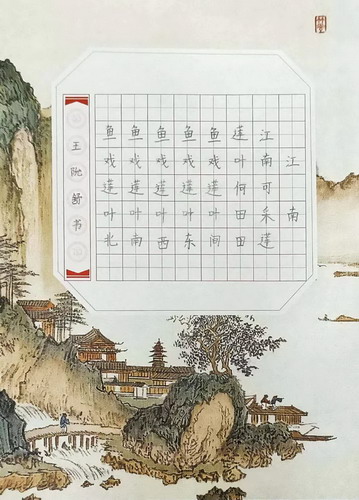 江南
江南可采莲
莲叶何田田
鱼戏莲叶间
鱼戏莲叶东
鱼戏莲叶西
鱼戏莲叶南
鱼戏莲叶北
王阮舒书